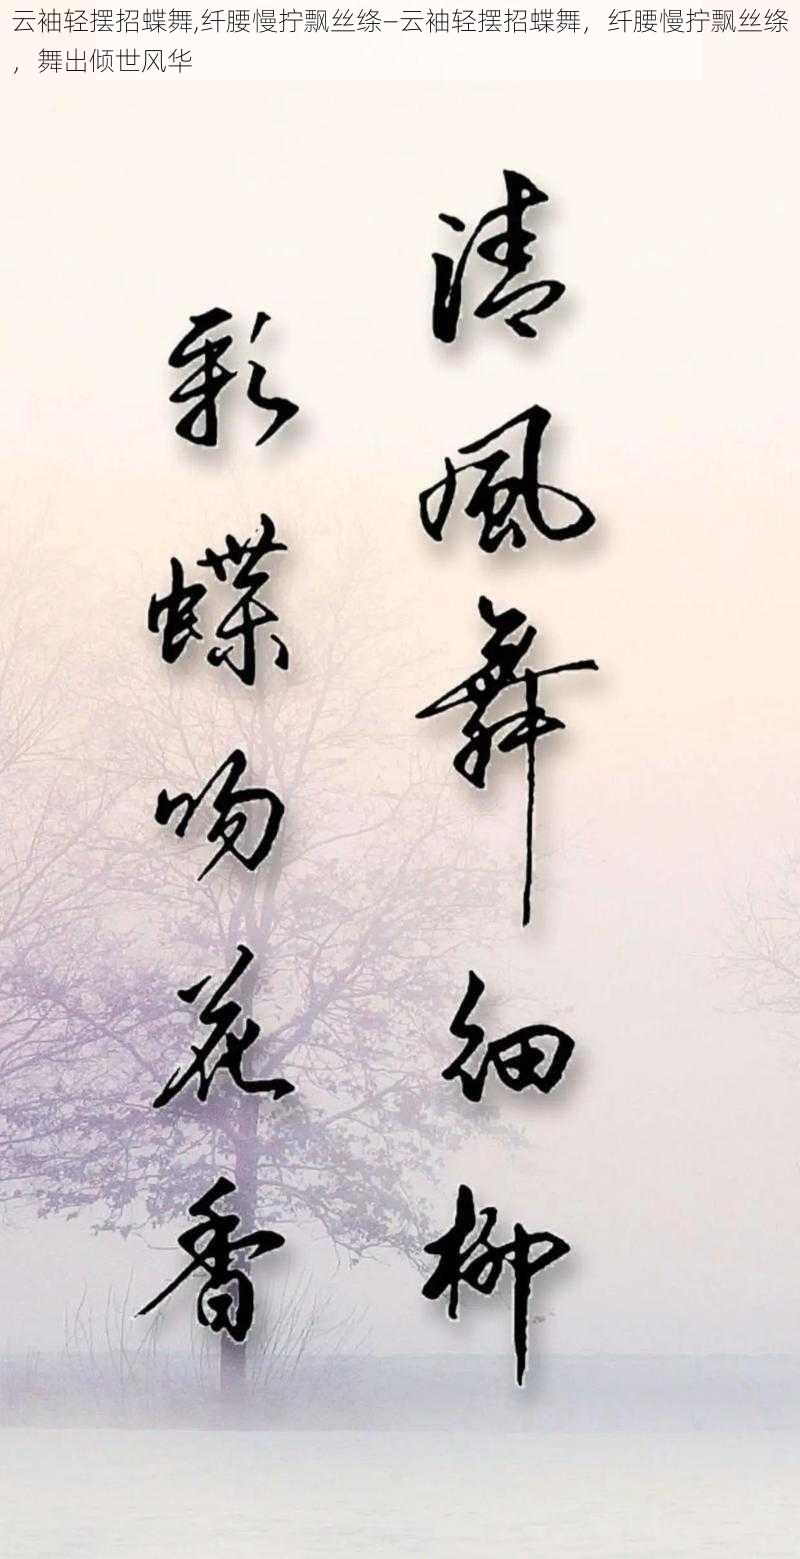 云袖轻摆招蝶舞,纤腰慢拧飘丝绦—云袖轻摆招蝶舞，纤腰慢拧飘丝绦
，舞出倾世风华
清風舞细柳
彩蝶吻花香